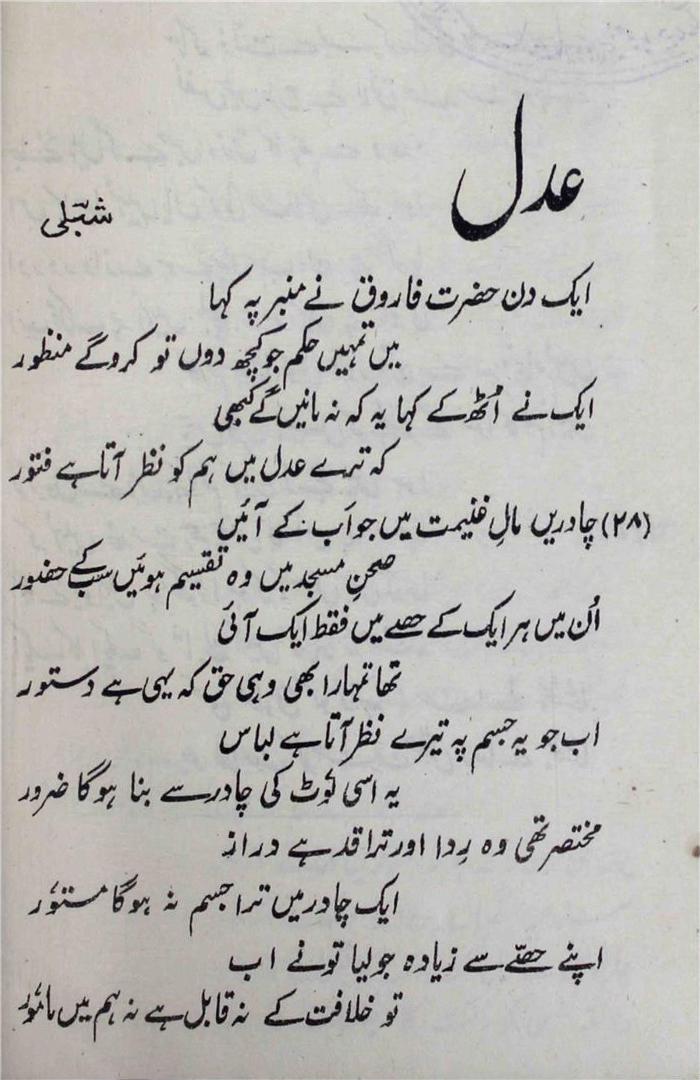 عدل
شبلی
ایک دن حضرت فاروق نے منبر پہ کہا
میں تمہیں حکم جو کچھ دوں تو کرو گے منظور
ایک نے اُٹھ کے کہا یہ کہ نہ مانیں گے کبھی
کہ ترے عدل میں ہم کو نظر آتا ہے فتور
(۲۸) چادریں مالِ غنیمت میں جو اَب کے آئیں
صحنِ مسجد میں وہ تقسیم ہوئیں سب کے حضور
اُن میں ہر ایک کے حصے میں فقط ایک آئی
تھا تمہارا بھی وہی حق کہ یہی ہے دستور
اب جو یہ جسم پہ تیرے نظر آتا ہے لباس
یہ اسی لُوٹ کی چادر سے بنا ہوگا ضرور
مختصر تھی وہ رِدا اور ترا قد ہے دراز
ایک چادر میں ترا جسم نہ ہوگا مستور
اپنے حصّے سے زیادہ جو لیا تونے اب
تو خلافت کے نہ قابل ہے نہ ہم میں مامُور